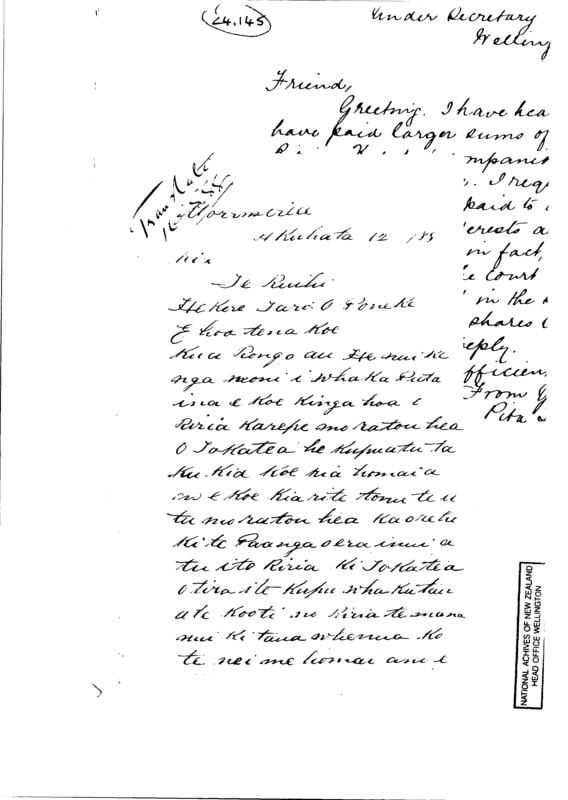 24.145
Under Secretary
Welling
Friend,
Greeting. I have hea
have paid larger sums of
mpanies
I req
paid to
erests a
in fact,
e Court
in the
shares
eply.
fficien
From
Pita
Translate
Akuhata 12 188
Kia
Te Ruihi
Hekere Tari O Poneke
E hoa tena koe
Kua Rongo au He nui ke
nga moni i whaka Puta
ina e Koe Kinga hoa
Riria Karepe mo ratou hea
O Tokatea he Kupuatu ta
Ku Kia Koe kia homai a
e Koe Kia rite tonu te u
tu mo ratou hea Kaore he
Ki te Paanga o era i nui a
tu i to Riria Ki Tokatea
Otira i te Kupu whakatau
a te Kooti no Riria te mana
nui Ki taua whenua Ko
te nei me homai ano e
NATIONAL ACHIVES OF NEW ZEALAND
HEAD OFFICE WELLINGTON